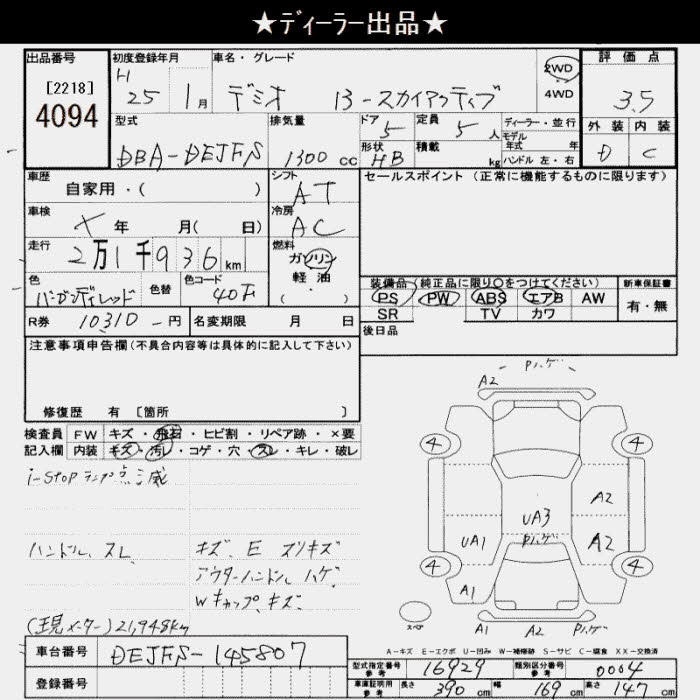 ★ディーラー出品★
出品番号
[2218]
4094
初度登録年月
H
25 1月
車名・グレード
デミオ 13-スカイアクティブ
2WD
4WD
評価点
3.5
外装 内装
D C
型式
DBA-DEJFS
排気量
1300 cc
ドア
5
形状
HB
定員
5 人
積載
kg
ディーラー・並行
モデル
年式 年
ハンドル 左・右
車歴
自家用・( )
シフト
AT
セールスポイント(正常に機能するものに限ります)
車検
X 年 月( 日)
冷房
AC
走行
2万1千936km
燃料
ガソリン
軽・油
( ・ )
色
バーガンディレッド
色替
色コード
40F
装備品 純正品に限り〇をつけてください)
PS PW ABS エアB AW
SR TV カワ
新車保証書
有・無
R券 10310-円
名変期限 月 日
後日品
注意事項申告欄(不具合内容等は具体的に記入して下さい)
修復歴 有 [箇所 ]
検査員
記入欄
FW キズ・飛石・ヒビ割・リペア跡・×要
内装 キズ・汚レ・コゲ・穴・スレ・キレ・破レ
i-STOPランプ点滅
ハンドル、スレ
キズ、E スリキズ
アウターハンドル ハゲ
Wキャップ、キズ
(現メーター) 21,948km
車台番号 DEJFS-145807
登録番号
- Pハゲ -
A2
4 4
A2
UA3
Pハゲ
UA1 A2
4 4
A1
スペア
A1 A2 Pハゲ
A-キズ E-エクボ U-凹み W-補修跡 S-サビ C-腐食 XX-交換済
型式指定番号
参考
16929
類別区分番号
参考
0004
車庫証明用
参考
長さ 390 cm
幅 169 cm
高さ 147 cm